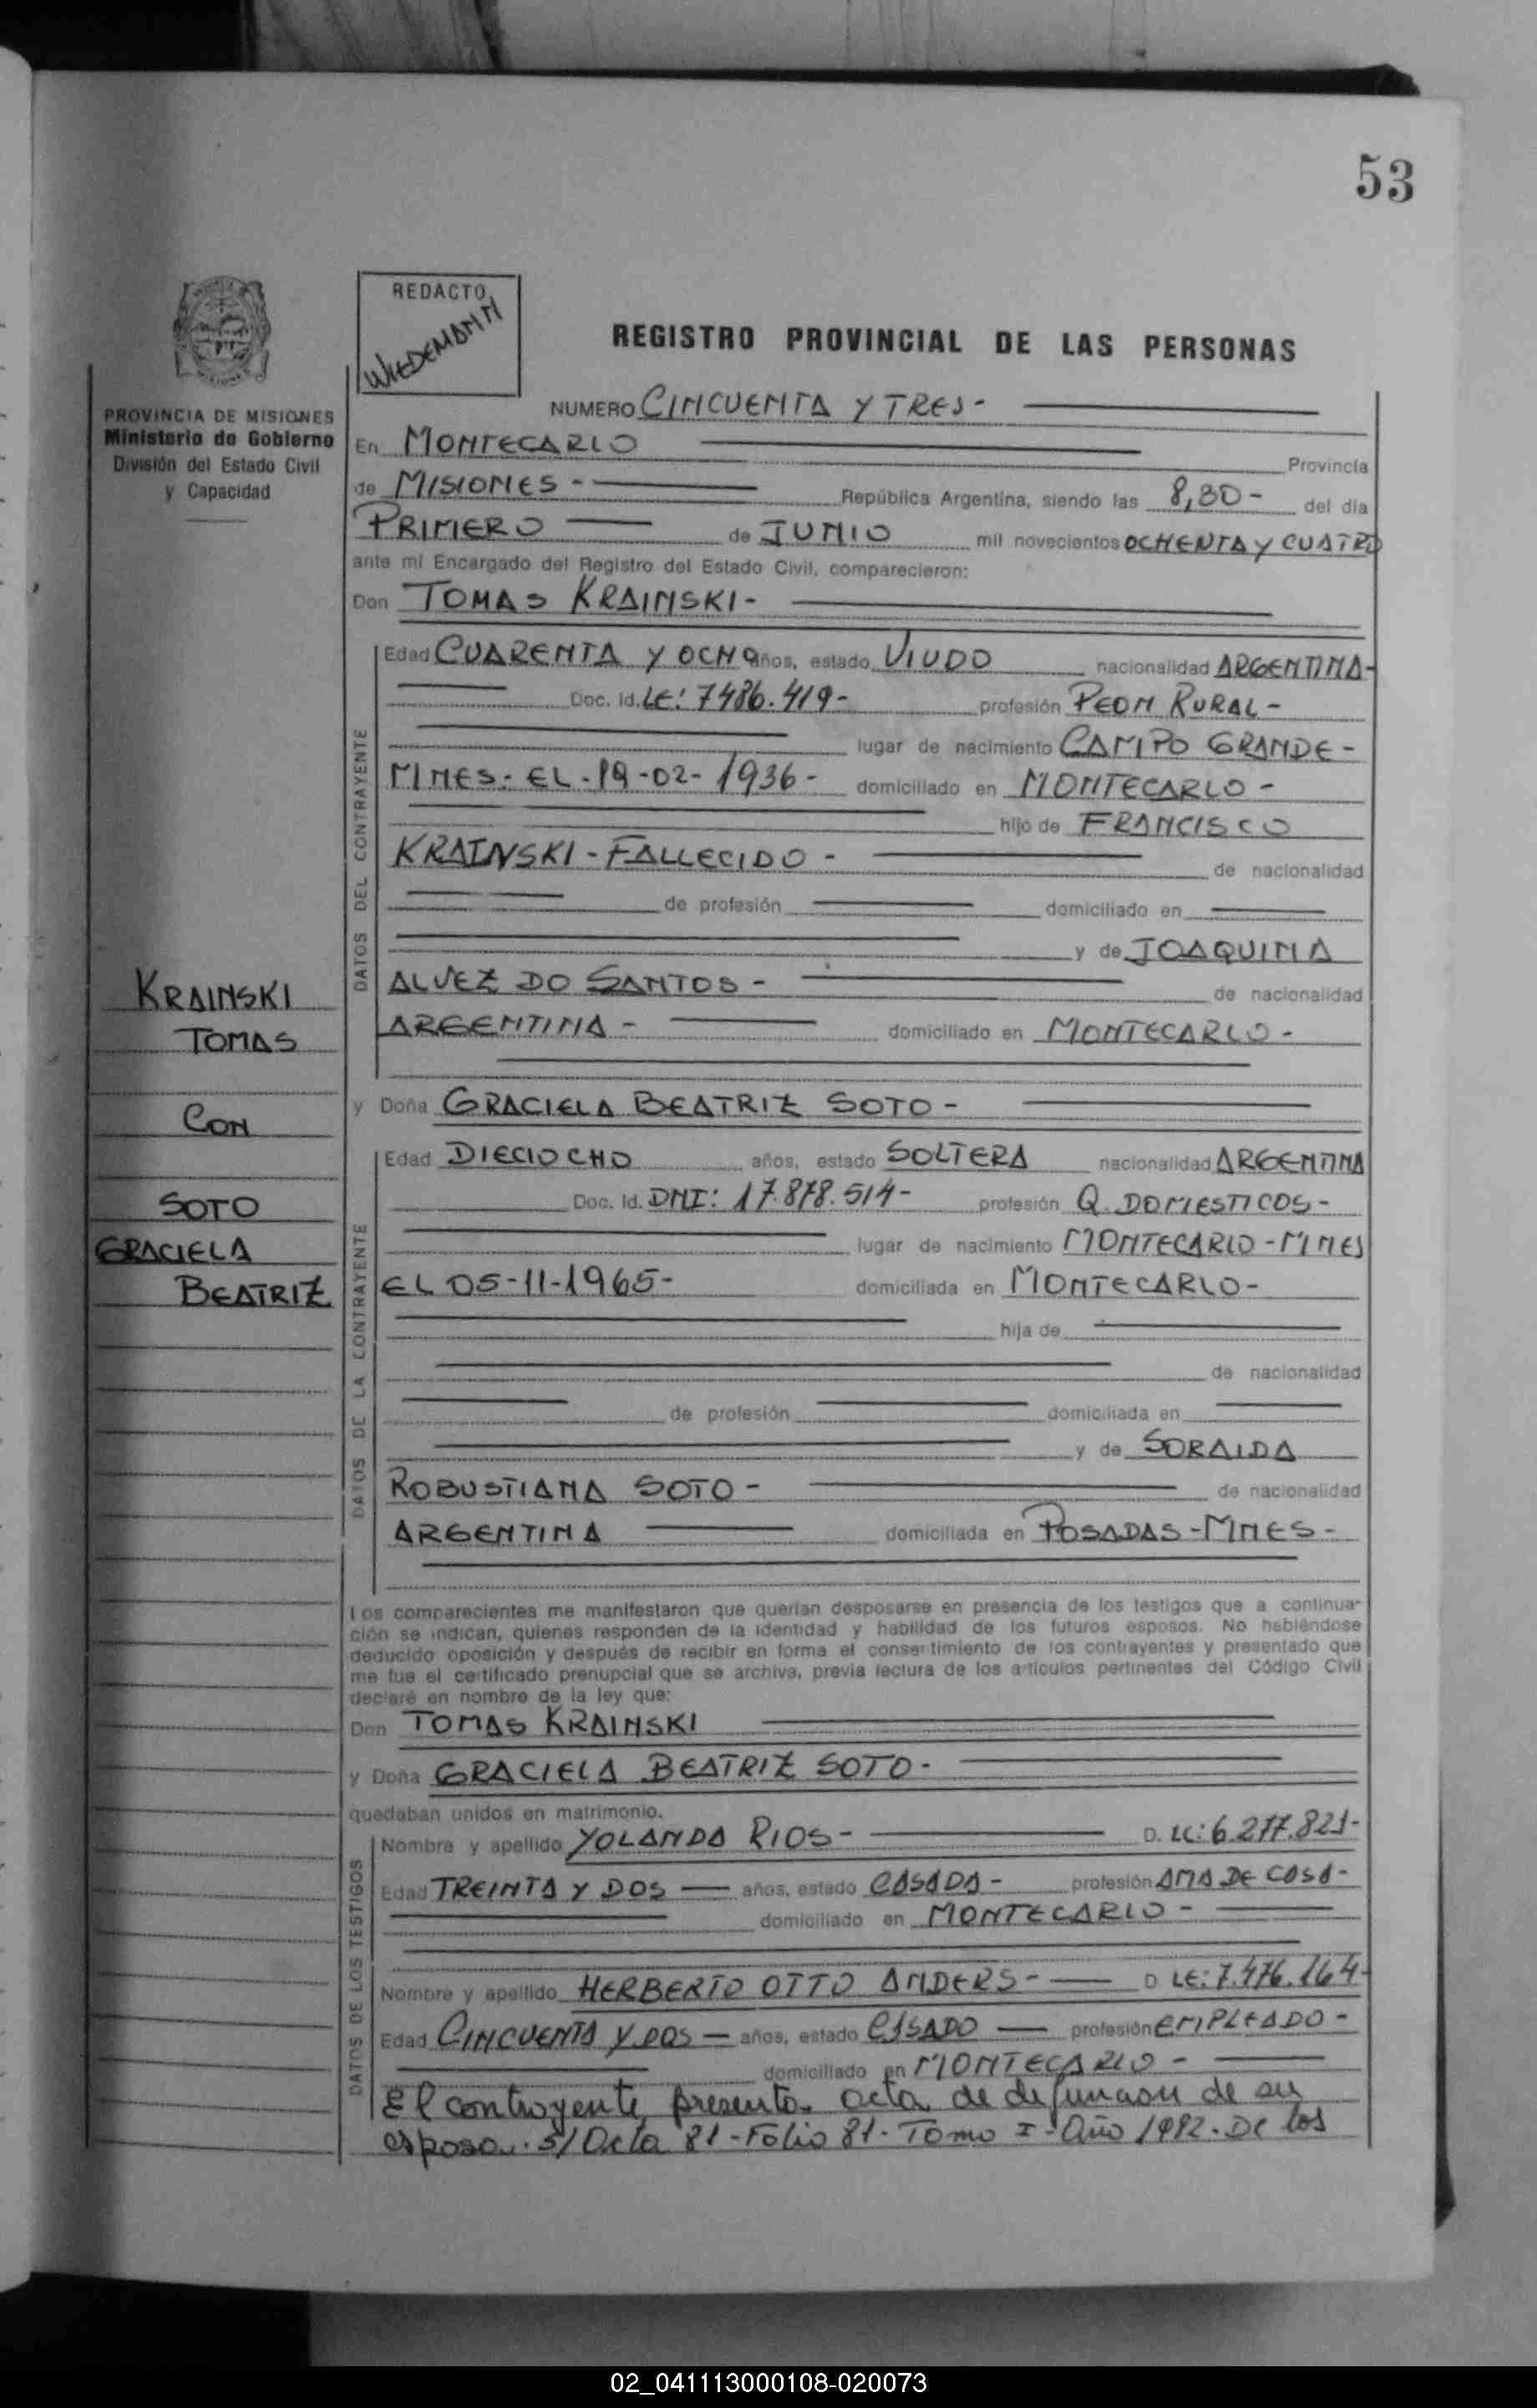 53
REDACTO
WIEDEMANN
REGISTRO PROVINCIAL DE LAS PERSONAS
PROVINCIA DE MISIONES
Ministerio de Gobierno
División del Estado Civil
y Capacidad
NUMERO CINCUENTA Y TRES-
En MONTECARLO Provincia
de MISIONES- República Argentina, siendo las 8,30- del día
PRIMERO de JUNIO mil novecientos OCHENTA Y CUATRO
ante mí Encargado del Registro del Estado Civil, comparecieron:
Don TOMAS KRAINSKI-
DATOS DEL CONTRAYENTE
Edad CUARENTA Y OCHO años, estado VIUDO nacionalidad ARGENTINA-
Doc. Id. LE: 7486.419- profesión PEON RURAL-
lugar de nacimiento CAMPO GRANDE-
MNES.- EL-19-02-1936- domiciliado en MONTECARLO-
hijo de FRANCISCO
KRAINSKI-FALLECIDO- de nacionalidad
de profesión domiciliado en
y de JOAQUINA
ALVEZ DO SANTOS- de nacionalidad
ARGENTINA- domiciliado en MONTECARLO-
KRAINSKI
TOMAS
CON
SOTO
GRACIELA
BEATRIZ
y Doña GRACIELA BEATRIZ SOTO-
DATOS DE LA CONTRAYENTE
Edad DIECIOCHO años, estado SOLTERA nacionalidad ARGENTINA
Doc. Id. DNI: 17.878.514- profesión Q. DOMESTICOS-
lugar de nacimiento MONTECARLO-MNES
EL 05-11-1965- domiciliada en MONTECARLO-
hija de
de nacionalidad
de profesión domiciliada en
y de SORAIDA
ROBUSTIANA SOTO- de nacionalidad
ARGENTINA domiciliada en POSADAS-MNES-
Los comparecientes me manifestaron que querían desposarse en presencia de los testigos que a continua-
ción se indican, quienes responden de la identidad y habilidad de los futuros esposos. No habiéndose
deducido oposición y después de recibir en forma el consentimiento de los contrayentes y presentado que
me fue el certificado prenupcial que se archiva, previa lectura de los artículos pertinentes del Código Civil
declaré en nombre de la ley que:
Don TOMAS KRAINSKI
y Doña GRACIELA BEATRIZ SOTO-
quedaban unidos en matrimonio.
DATOS DE LOS TESTIGOS
Nombre y apellido YOLANDA RIOS- D. LC: 6.277.821-
Edad TREINTA Y DOS años, estado CASADA- profesión AMA DE CASA-
domiciliado en MONTECARLO-
Nombre y apellido HERBERTO OTTO ANDERS- D LE: 7.476.164-
Edad CINCUENTA Y DOS años, estado CASADO profesión EMPLEADO-
domiciliado en MONTECARLO-
El contrayente presenta acta de defuncion de su
esposa. S/ Acta 81-Folio 81-Tomo I-Año 1982. De los
02_041113000108-020073